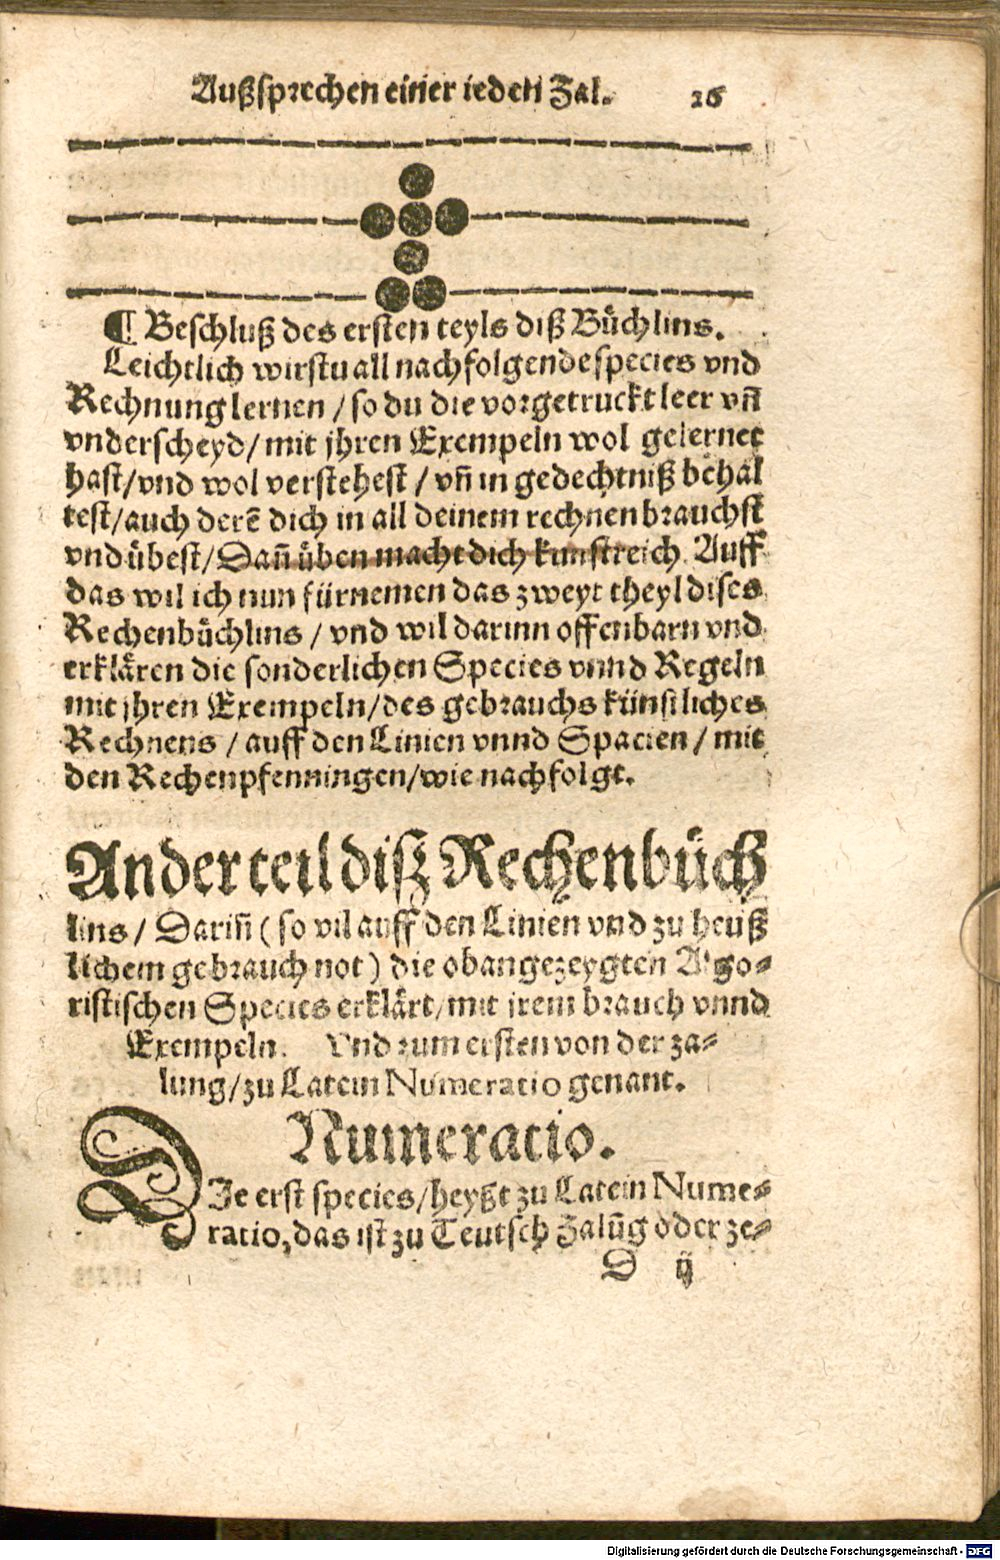 Außsprechen einer ieden Zal. 26
¶ Beschluß des ersten teyls diß Bůchlins.
Leichtlich wirstu all nachfolgende species vnd
Rechnung lernen / so du die vorgetruckt leer vñ
vnderscheyd / mit jhren Exempeln wol gelernet
hast / vnd wol verstehest / vñ in gedechtniß behal
test / auch derẽ dich in all deinem rechnen brauchst
vnd übest / Dañ üben macht dich kunstreich. Auff
das wil ich nun fürnemen das zweyt theyl dises
Rechenbůchlins / vnd wil darinn offenbarn vnd
erklären die sonderlichen Species vnnd Regeln
mit jhren Exempeln / des gebrauchs künstliches
Rechnens / auff den Linien vnnd Spacien / mit
den Rechenpfenningen / wie nachfolgt.
Ander teil diß Rechenbůch
lins / Dariñ ( so vil auff den Linien vnd zu heuß
lichem gebrauch not ) die obangezeygten Algo⸗
ristischen Species erklärt / mit jrem brauch vnnd
Exempeln. Vnd zum ersten von der za⸗
lung / zu Latein Numeratio genant.
Numeratio.
DIe erst species / heyßt zu Latein Nume⸗
ratio, das ist zu Teutsch Zalũg oder ze⸗
D ij
Digitalisierung gefördert durch die Deutsche Forschungsgemeinschaft - DFG